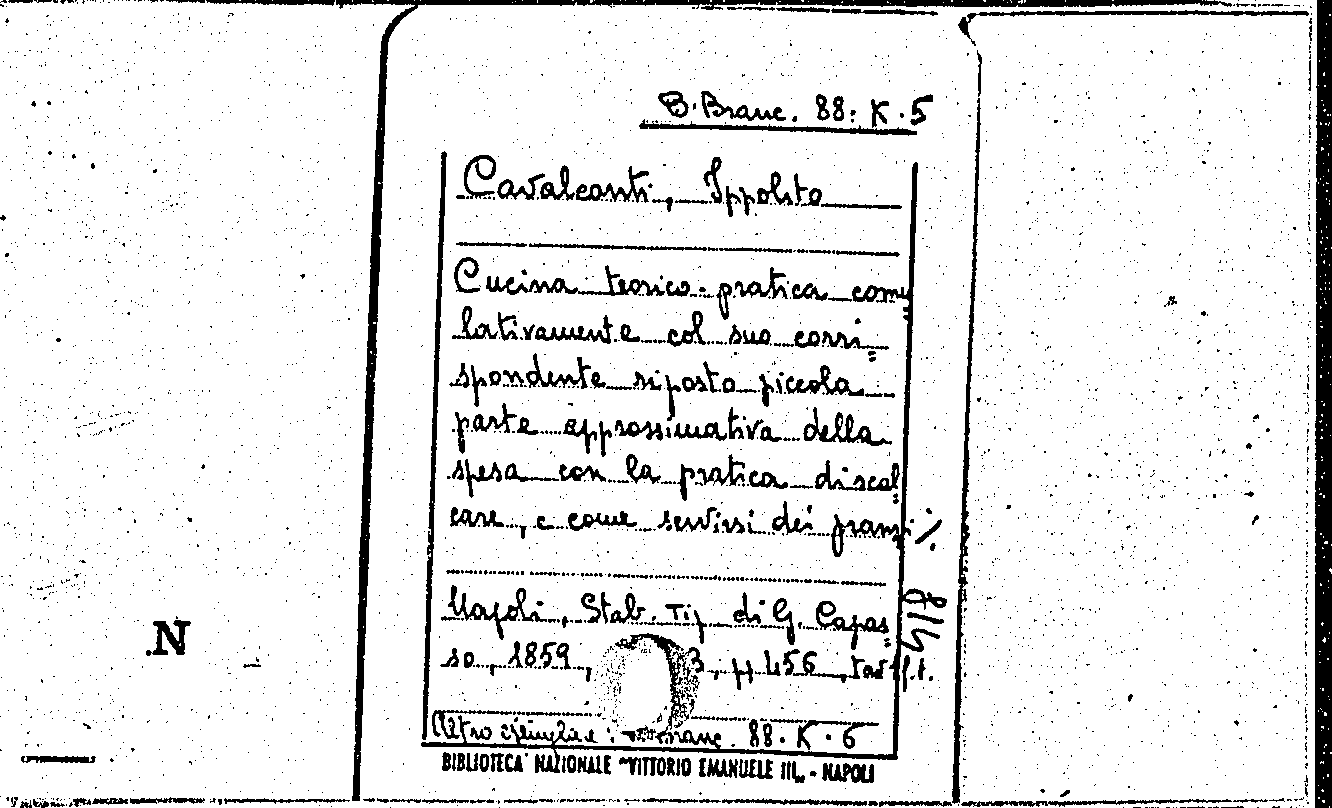 B. Branc. 88. K. 5
Cavalcanti, Ippolito
Cucina teorico-pratica comu
lativamente col suo corri=
spondente riposto piccola
parte approssimativa della
spesa con la pratica di scal
care, e come servirsi dei pranzi ./.
Napoli, Stab. Tip. di G. Capas
so, 1859, 3, pp. 456, tav. f.t.
Altro esemplare: Branc. 88. K. 6
BIBLIOTECA NAZIONALE "VITTORIO EMANUELE III„ - NAPOLI
.N